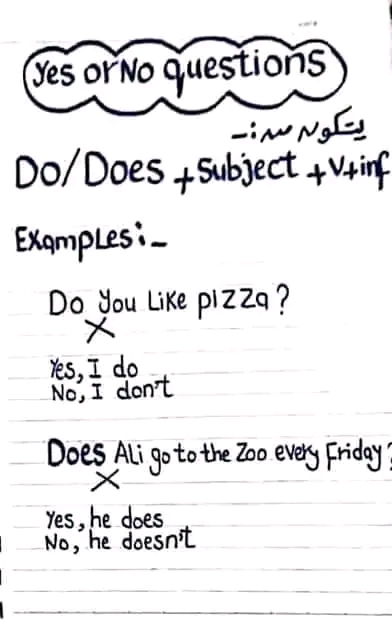 Yes or No questions
يتكون من :-
Do/Does + Subject + V+inf
Examples:-
Do You Like pizza?
X
Yes, I do
No, I don't
Does Ali go to the Zoo every Friday?
X
Yes, he does
No, he doesn't